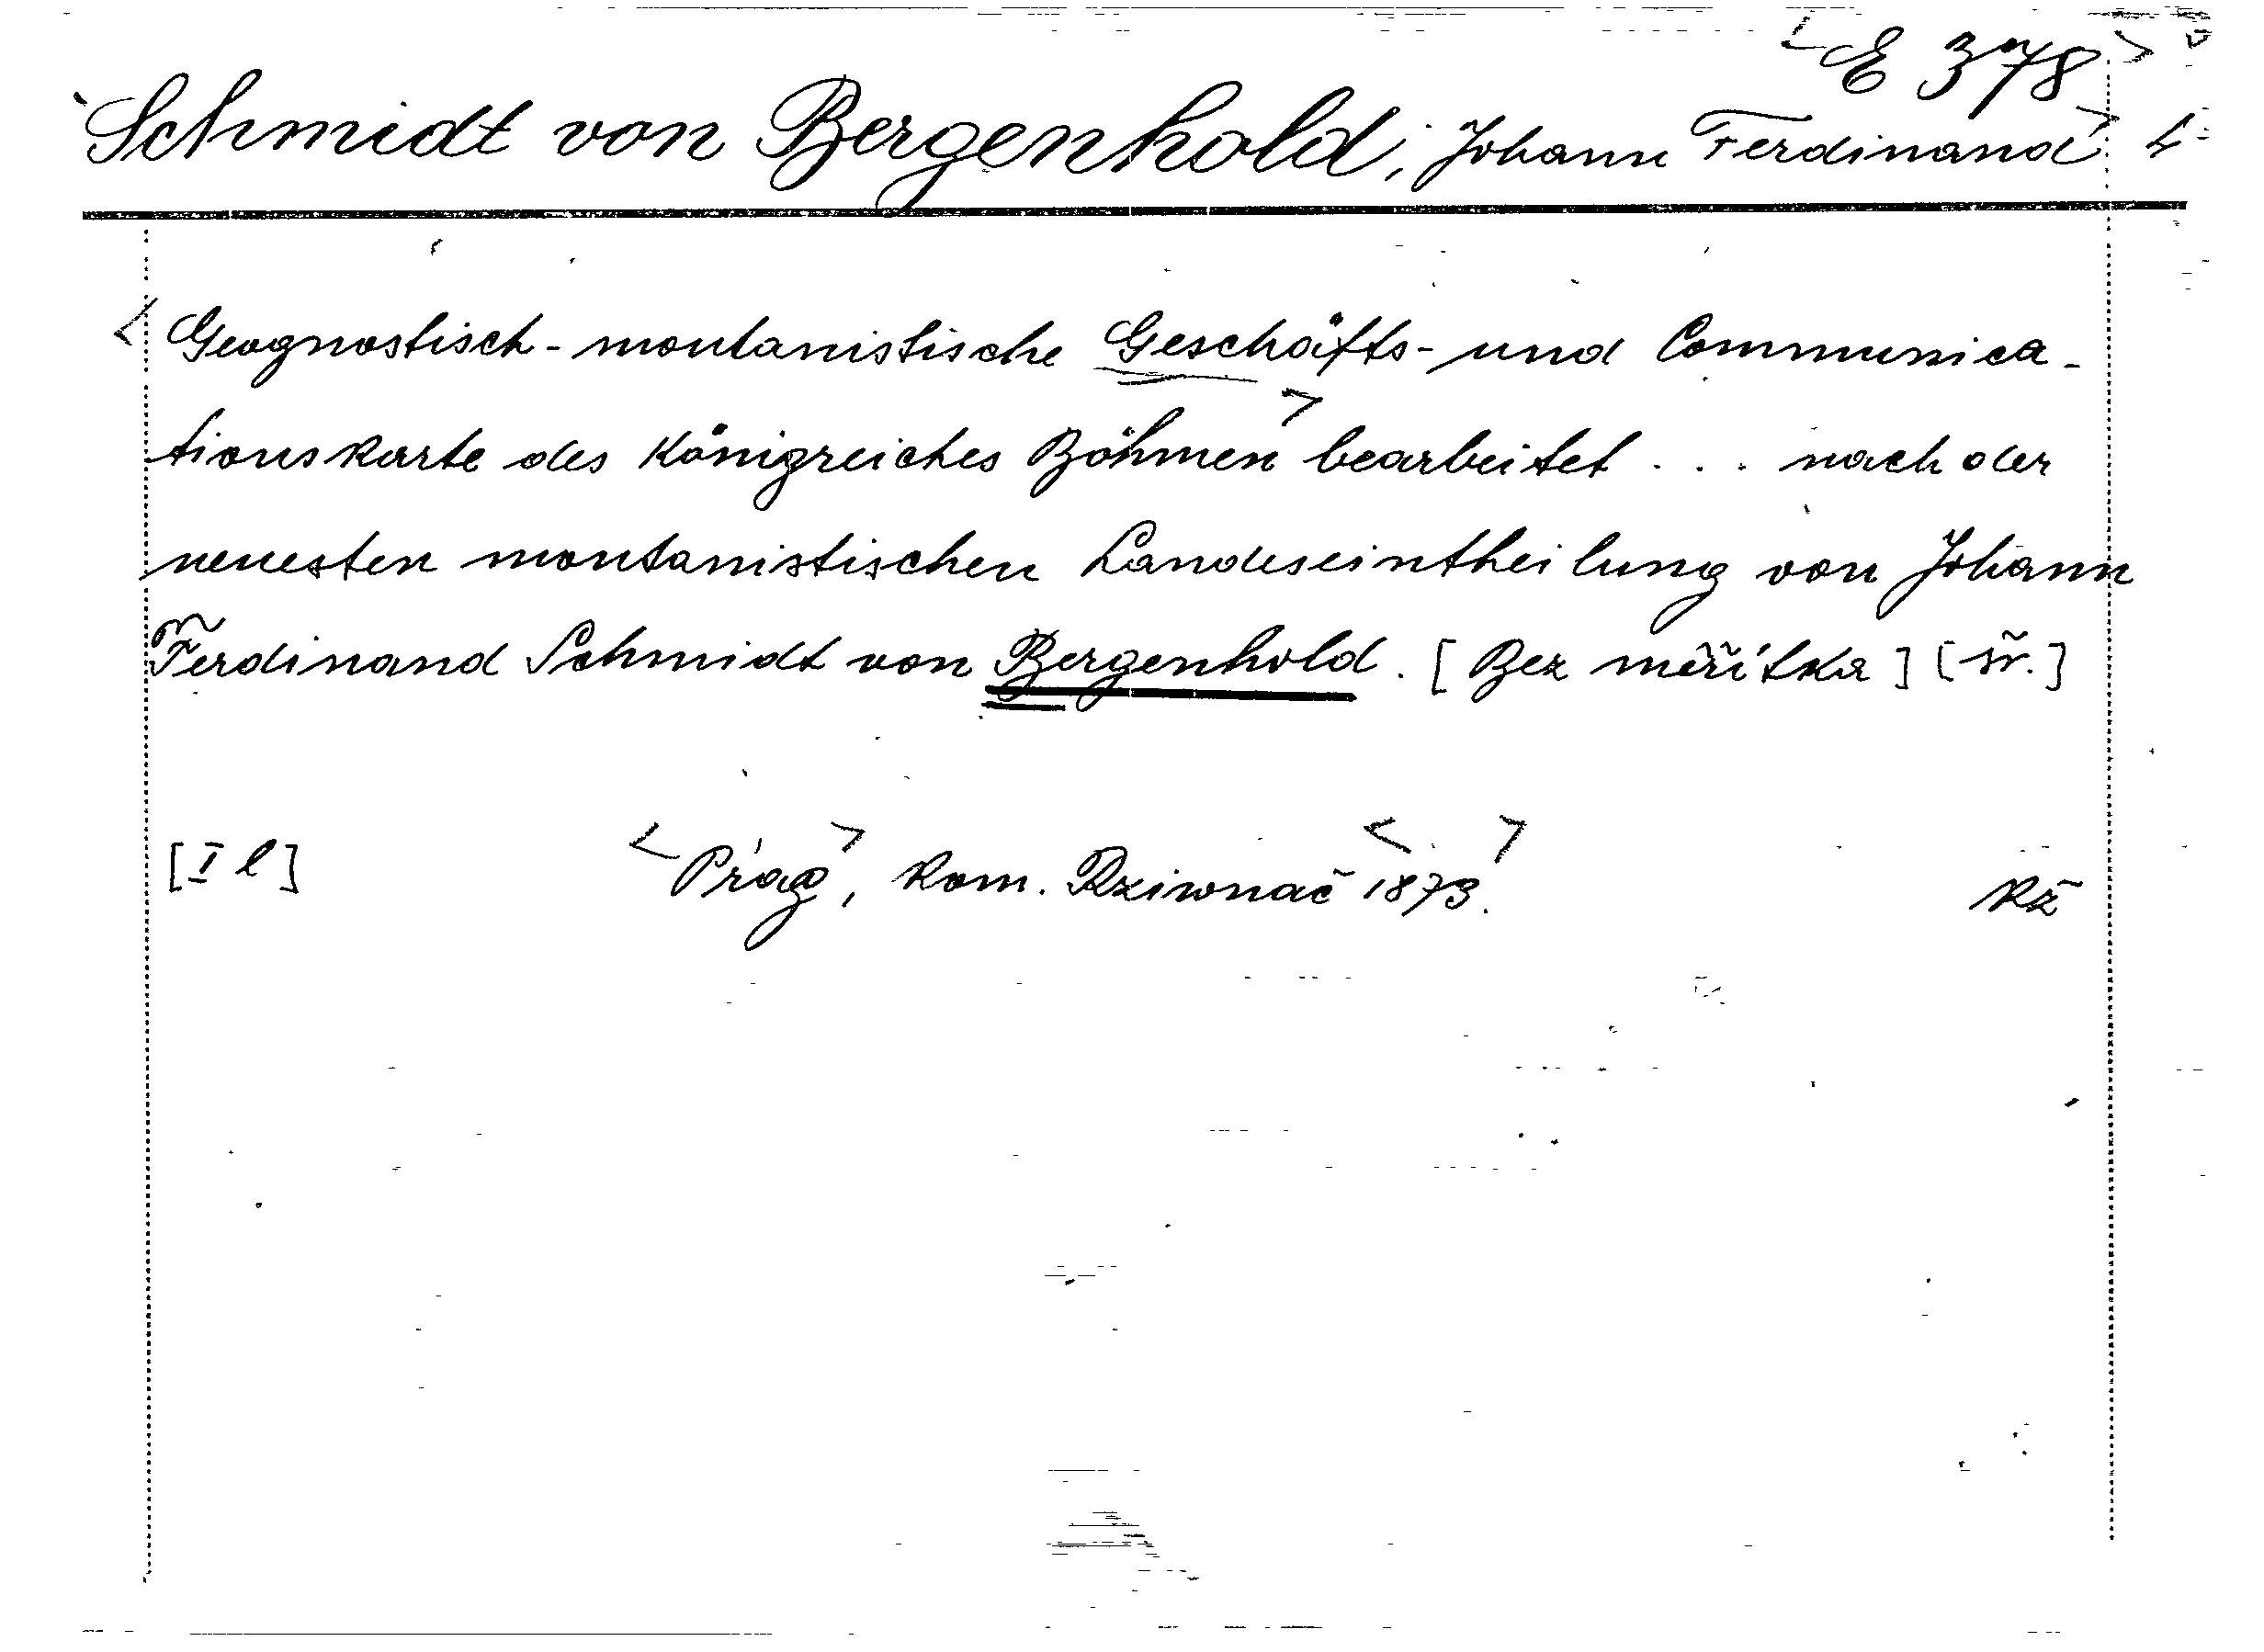 <E 378>
Schmidt von Bergenhold, Johann Ferdinand>
<Geognostisch-montanistische Geschäfts- und Communica-
tionskarte des Königreiches Böhmen> bearbeitet . . . nach der
neuesten montanistischen Landeseintheilung von Johann
Ferdinand Schmidt von Bergenhold. [Bez měřítka] [šr.]
[I l] <Prag>, Kom. Rziwnač <1873.>
Kž